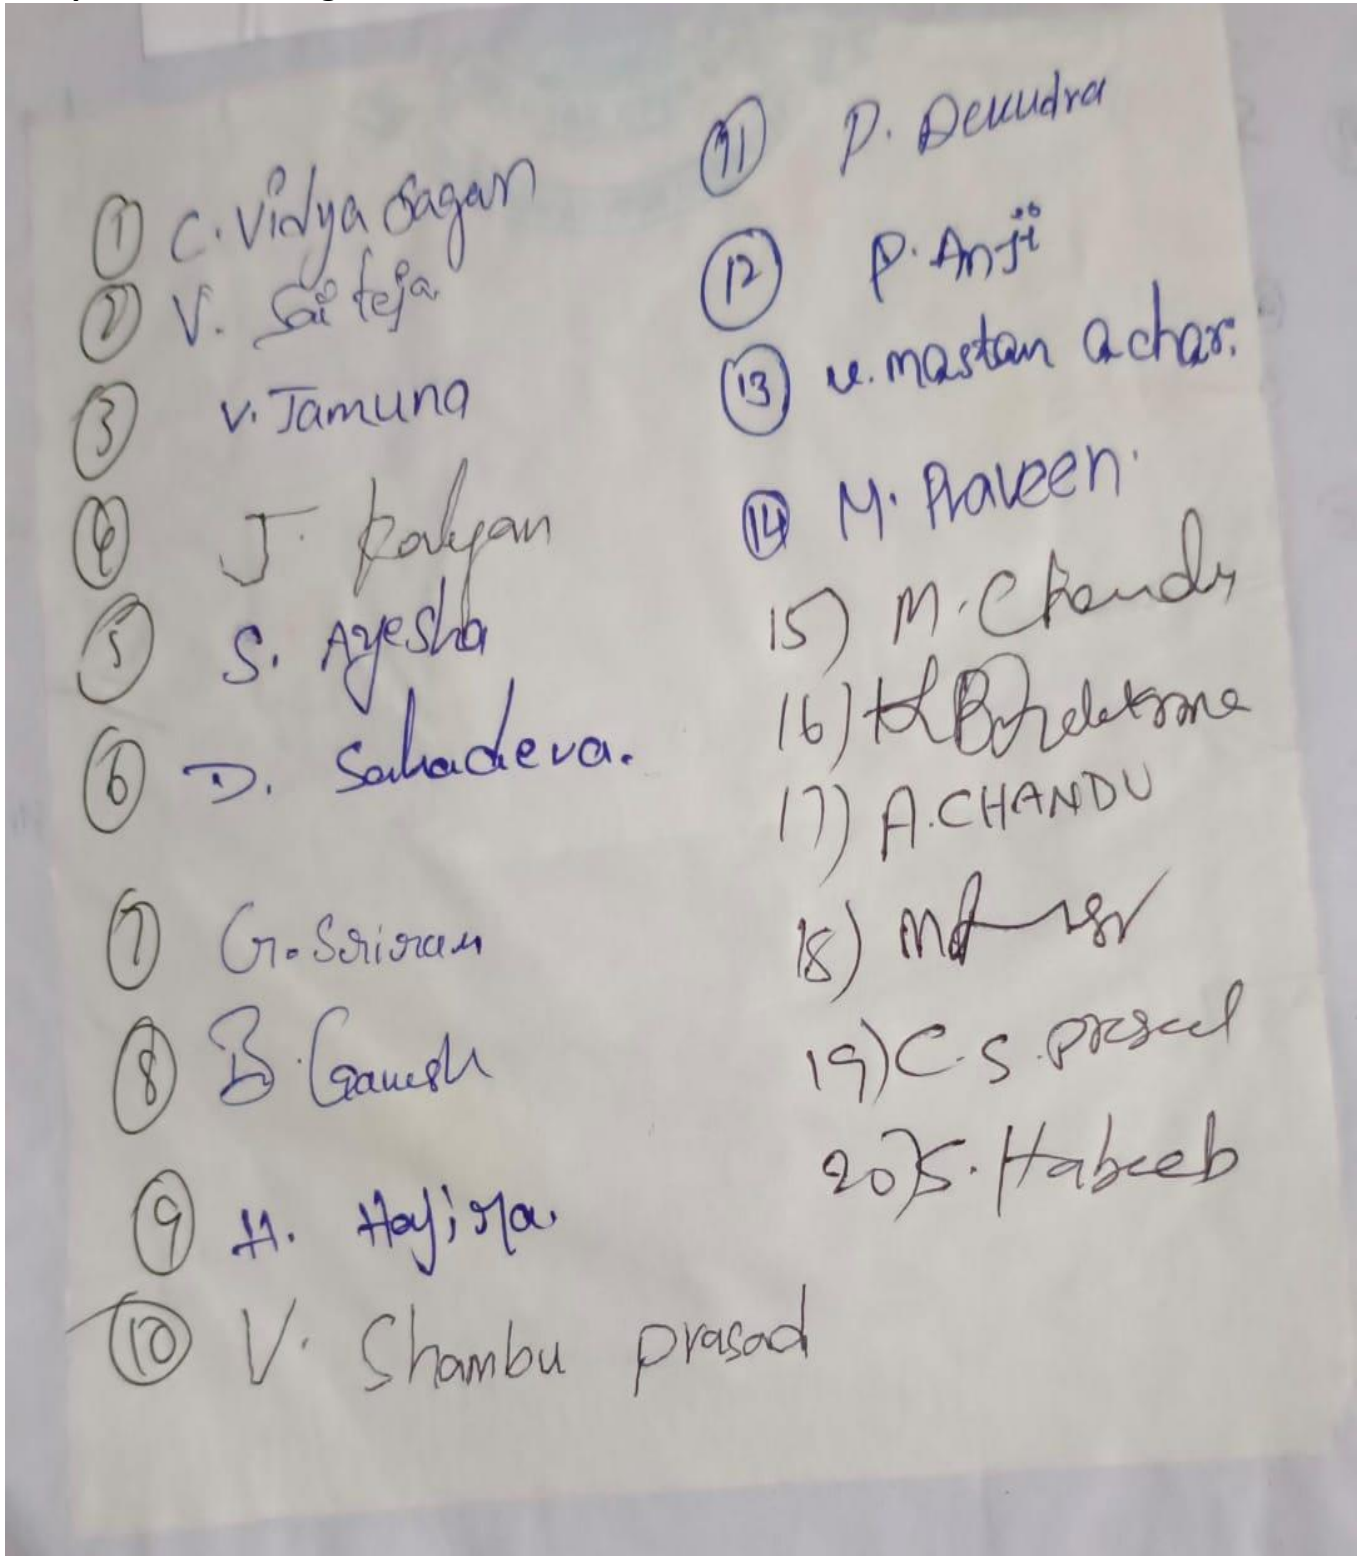 ① C. Vidya Sagar
② V. Sai teja
③ V. Jamuna
④ J. Kalyan
⑤ S. Ayesha
⑥ D. Sahadeva.
⑦ G. Sriram
⑧ B. Ganesh
⑨ H. Hajira.
⑩ V. Shambu prasad
⑪ P. Devudra
⑫ P. Anji
⑬ v. mastan achar.
⑭ M. Praveen.
15) M. Chandu
16)
17) A. CHANDU
18)
19) C. S. prasad
20) S. Habeeb